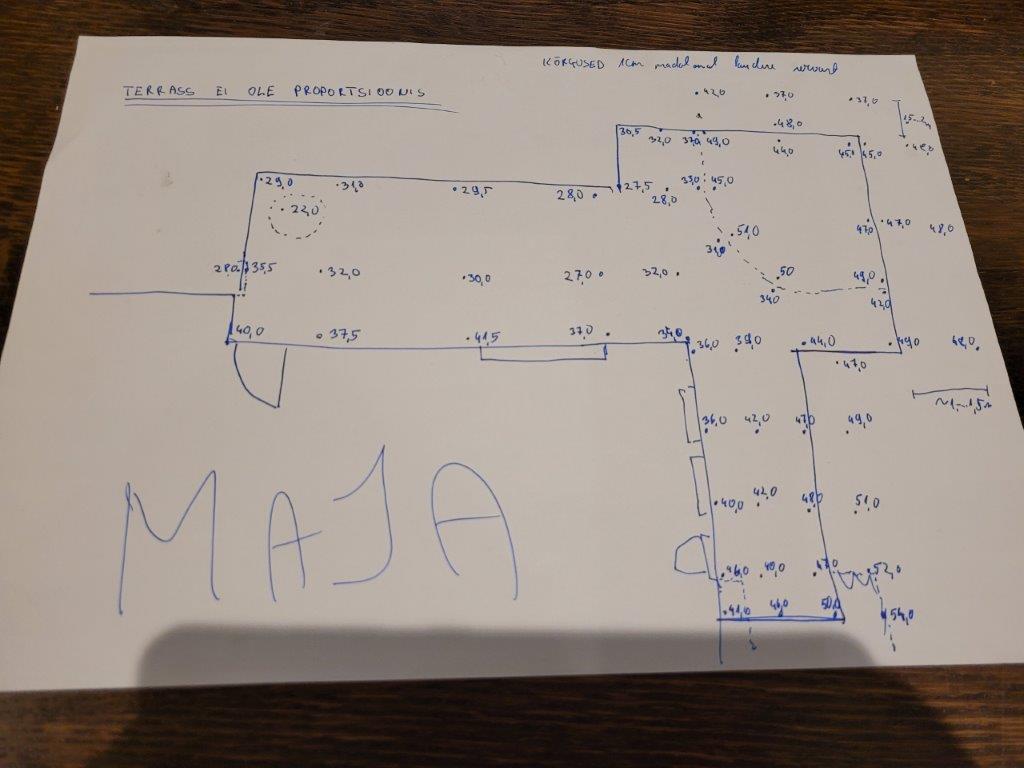 KÕRGUSED 1cm madalamal
TERRASS EI OLE PROPORTSIOONIS
.42,0 .37,0 .37,0
.48,0
30,5 32,0 37,0 49,0 44,0 45,0 45,0 .48,0
.29,0 .31,0 .29,5 28,0 . 27,5 28,0 33,0 45,0
.22,0
47,0 .47,0 48,0
.51,0
31,0
28,0 35,5 .32,0 .30,0 27,0 . 32,0 . 50 49,0
34,0 42,0
40,0 . 37,5 .41,5 37,0 . 34,0 36,0 39,0 44,0 49,0 48,0
.47,0
~1...1,5m
36,0 42,0 47,0 49,0
MAJA
.40,0 42,0 48,0 51,0
46,0 47,0 52,0
.41,0 46,0 50,0 54,0